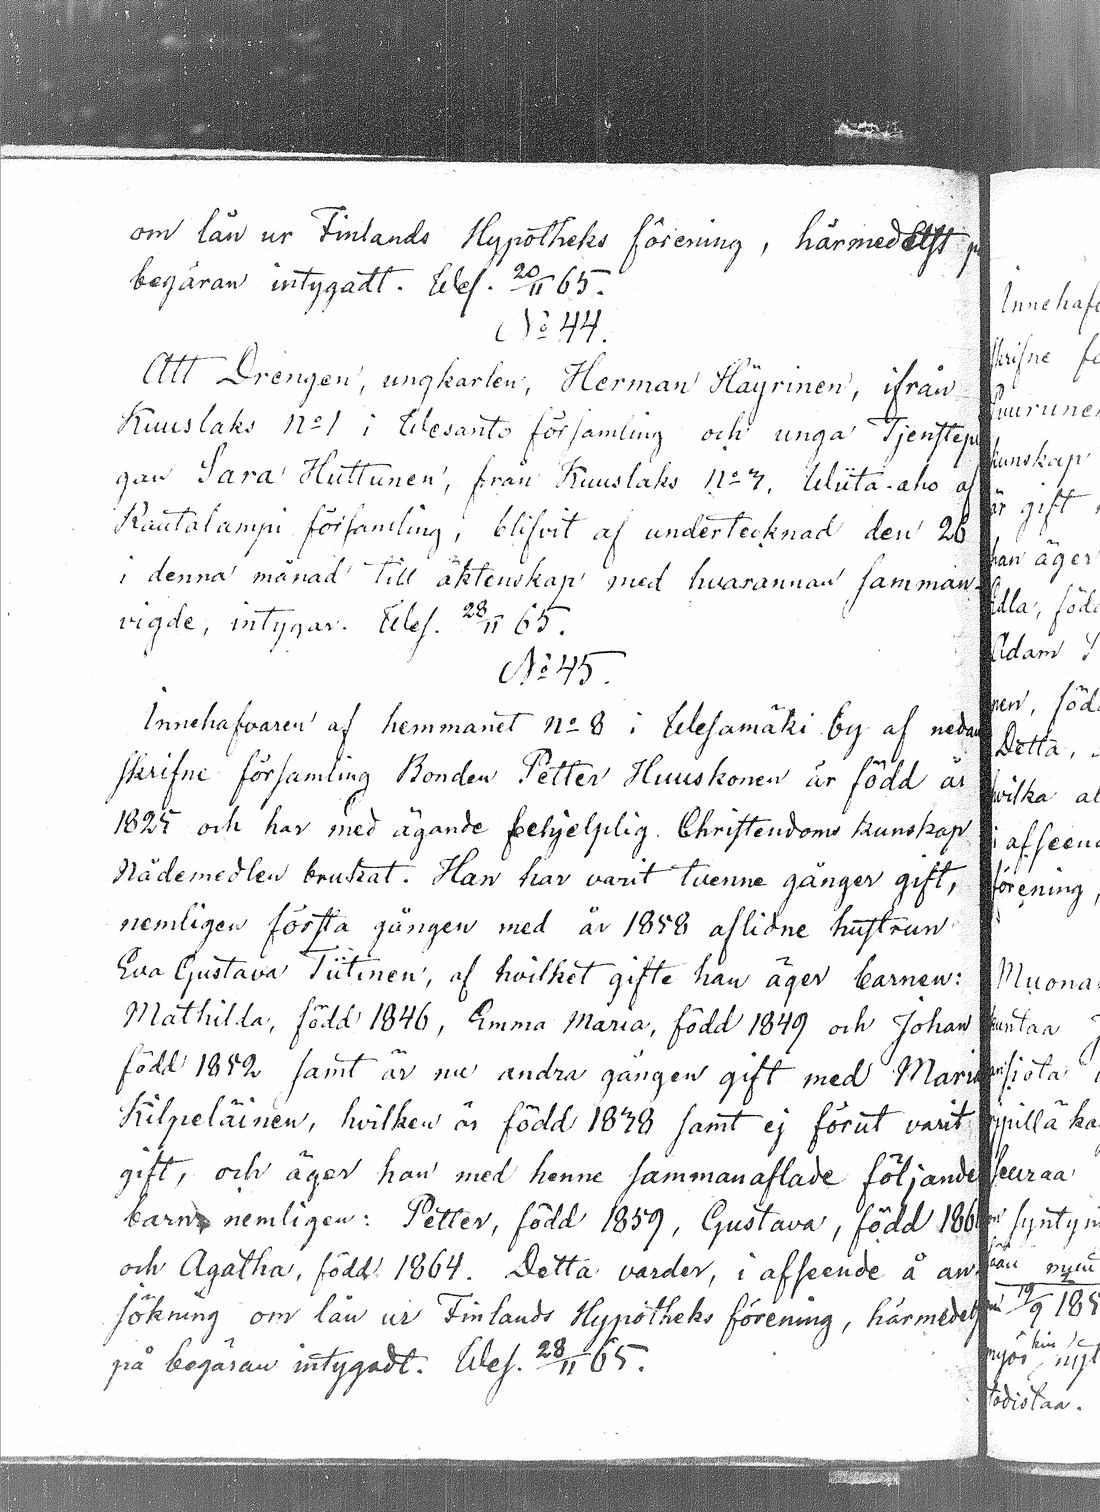 om lån ur Finlands Hypotheks förening, härmedelst
begäran intygadt. Wes. 20/II 65.
No 44.
Att Drengen, ungkarlen, Herman Häyrinen, ifrån
Kuuslaks No 1 i Wesanto församling och unga Tjenstepi
gan Sara Huttunen, från Kuuslaks No 7, Wiita-aho af
Rautalampi församling, blifvit af undertecknad den 26
i denna månad till äktenskap med hvarannan samman-
vigde, intygar. Wes. 28/II 65.
No 45.
Innehafvaren af hemmanet No 8 i Wesamäki by af nedan
skrifne församling Bonden Petter Huuskonen är född år
1825 och har med ägande behjelplig Christendoms kunskap
Nådemedlen brukat. Han har varit tvenne gånger gift,
nemligen första gången med år 1858 aflidne hustrun
Eva Gustava Tiitinen, af hvilket gifte han äger barnen:
Mathilda, född 1846, Emma Maria, född 1849 och Johan
född 1852 samt är nu andra gången gift med Maria
Kilpeläinen, hvilken är född 1838 samt ej förut varit
gift, och äger han med henne sammanaflade följande
barn nemligen: Petter, född 1859, Gustava, född 186
och Agatha, född 1864. Detta varder, i afseende å an-
sökning om lån ur Finlands Hypotheks förening, härmedelst
på begäran intygadt. Wes. 28/II 65.